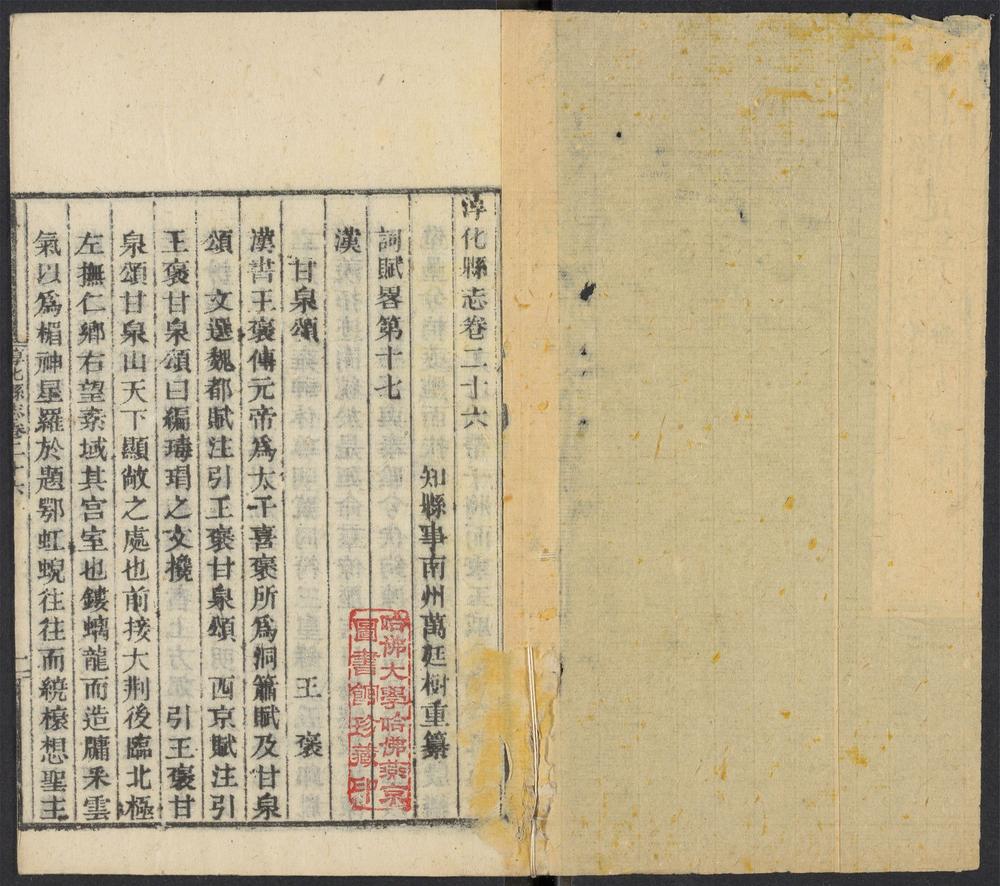 淳化縣志卷二十六
知縣事南州萬廷樹重纂
詞賦畧第十七
漢
甘泉頌　王褒
漢書王褒傳元帝為太子喜褒所為洞簫賦及甘泉
頌　文選魏都賦注引王褒甘泉頌　西京賦注引
王褒甘泉頌曰編瑇瑁之文橑　引王褒甘
泉頌甘泉山天下顯敞之處也前接大荆後臨北極
左撫仁鄉右望素域其宮室也鏤螭龍而造牖采雲
氣以為楣神星羅於題鄂虹蜺往往而繞榱想聖主
淳化縣志卷二十六
一
哈佛大學哈佛燕京
圖書館珍藏印